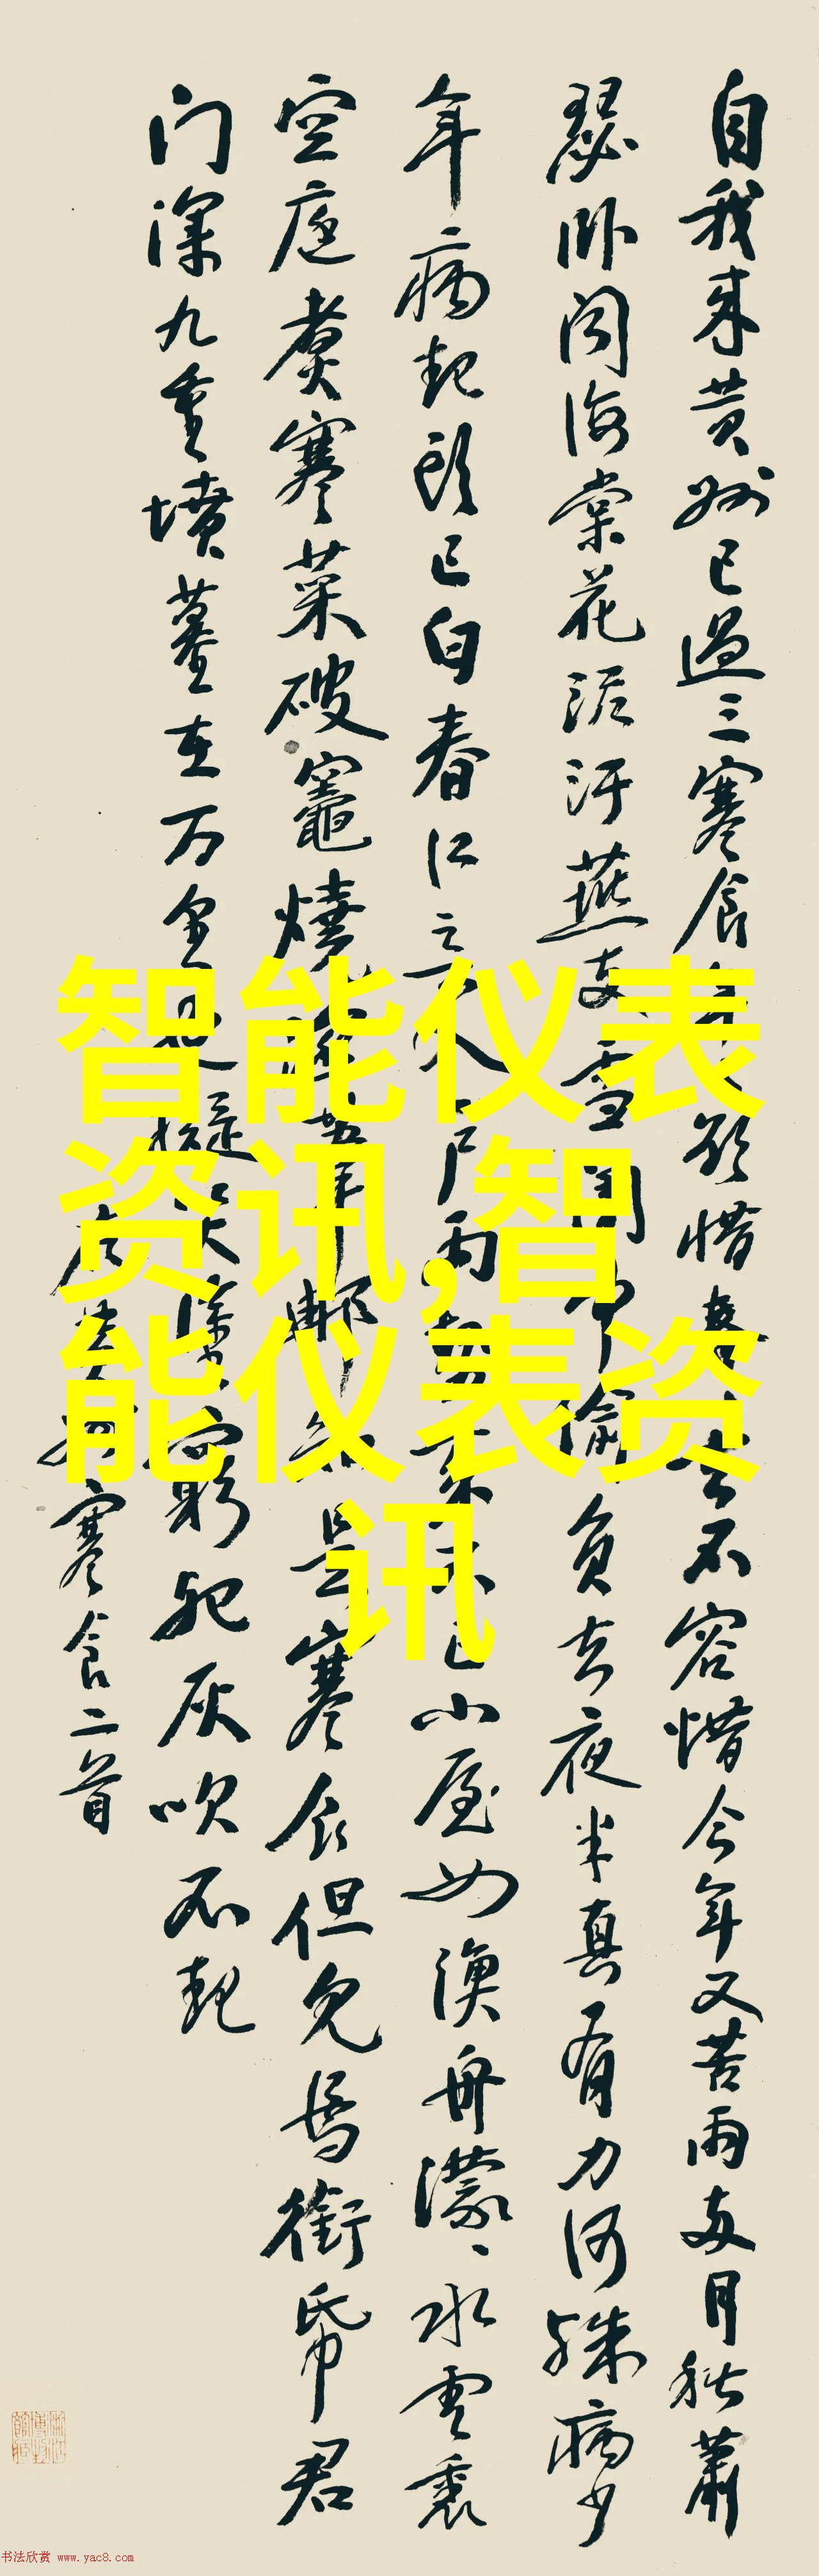 自我来黄州已过三寒食年年欲惜春春去不容惜今年又苦雨两月秋萧
瑟卧闻海棠花泥污燕支雪闇中偷负去夜半真有力何殊病少
年病起头已白春江欲入户雨势来不已小屋如渔舟濛濛水云里
空庖煮寒菜破灶烧湿苇那知是寒食但见乌衔帋君
门深九重坟墓在万里也拟哭涂穷死灰吹不起
黄州寒食二首
智能仪表
资讯,智
能仪表资
讯
书法欣赏 www.yac8.com